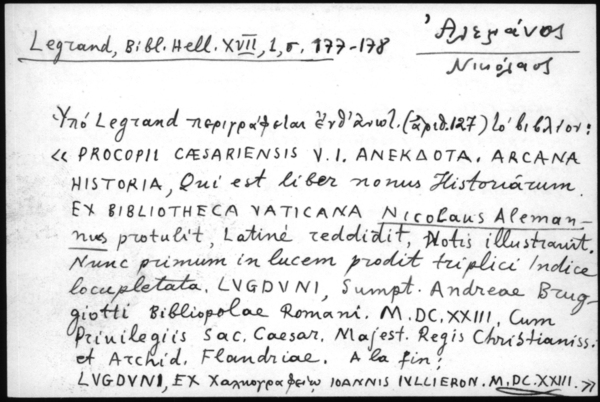 Legrand, Bibl. Hell. XVII, 1, σ. 177-178
Ἀλεμάνος
Νικόλαος
Ὑπό Legrand περιγράφεται ἐνθ' ἀνωτ. (ἀριθ. 127) τό βιβλίον:
« PROCOPII CÆSARIENSIS V. I. ANEKΔOTA. ARCANA
HISTORIA, Qui est liber nonus Historiarum.
EX BIBLIOTHECA VATICANA Nicolaus Aleman-
nus protulit, Latinè reddidit, Notis illustrauit.
Nunc primum in lucem prodit triplici Indice
locupletata. LVGDVNI, Sumpt. Andreae Brug-
giotti Bibliopolae Romani. M.DC.XXIII, Cum
Priuilegiis Sac. Caesar. Majest. Regis Christianiss.
et Archid. Flandriae. A la fin:
LVGDVNI, EX Χαλκογραφείῳ IOANNIS IVLLIERON. M.DC.XXIII. »